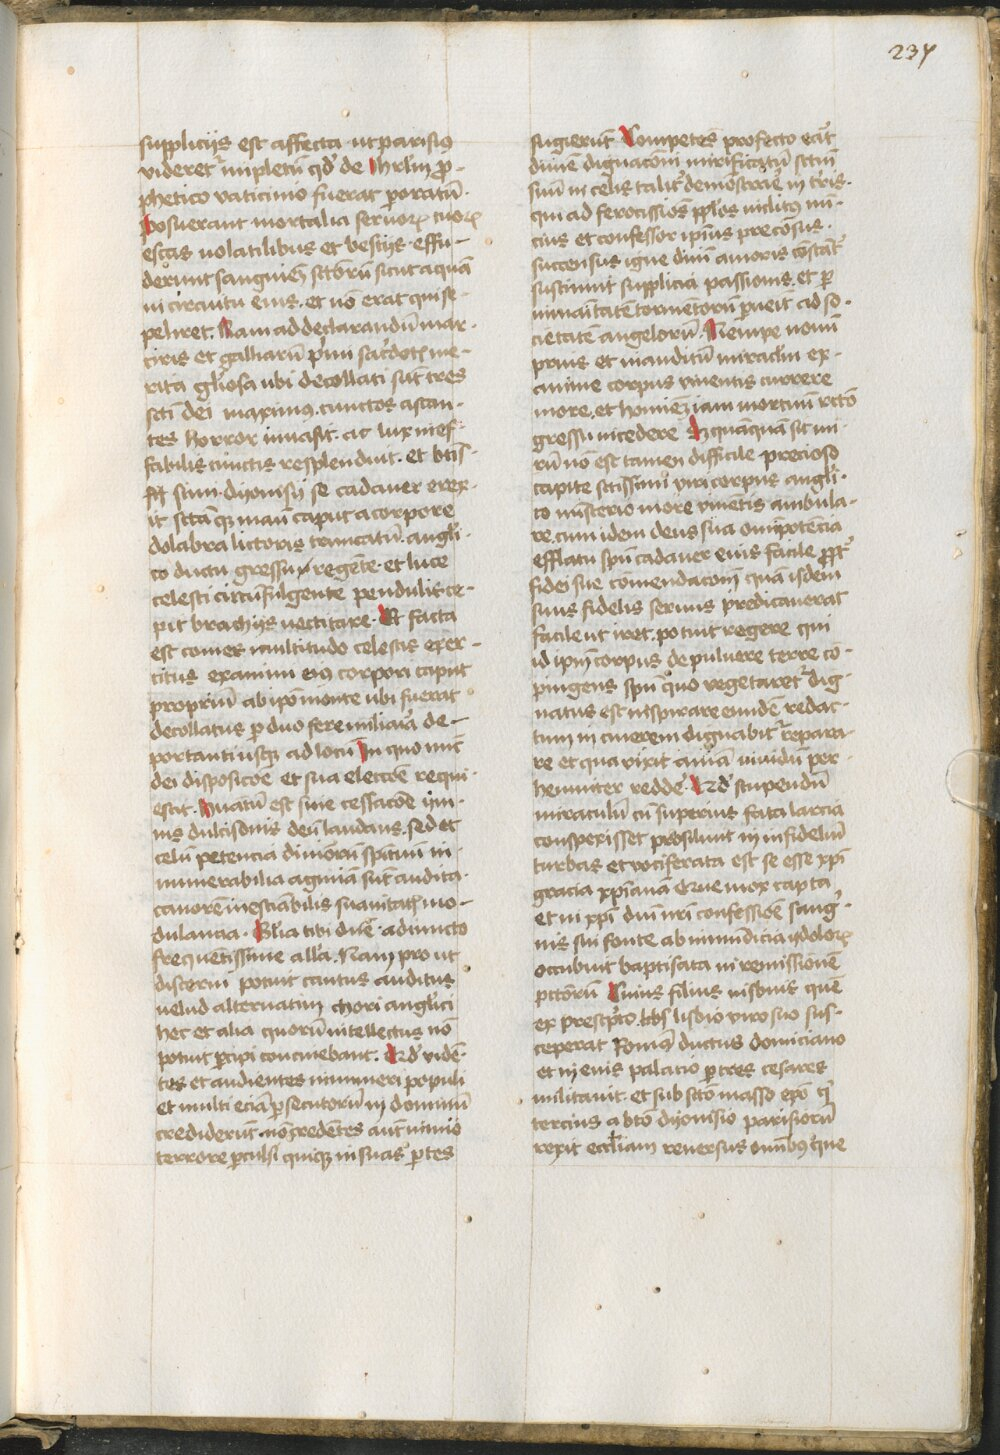 237
suppliciis est affecta ut parisius
videret᷑ impletū qd̕ de Ihrl̄m pro-
phetico vaticinio fuerat p̱oratū.
Posuerant mortalia seruoꝝ tuoꝝ
escas volatilibus et bestiis effu-
derunt sanguinē sctōrū sicut aquā
in circuitu eius. et nō erat qui se-
peliret. Nam ad declarandū mar-
tiris et galliarū p̓mi sac̓dotis me-
rita gl̓iosa ubi decollati sūt tres
scti dei maximus. cunctos astan-
tes horror inuasit. ac lux inef-
fabilis cunctis resplenduit. et bt̄is-
simi dyonisii se cadauer erex-
it sctāqꝫ manū caput a corpore
dolabra lictoris truncatū. angl̓i-
co ductu gressum regēte et luce
celesti circūfulgente pendulis ce-
pit brachiis uectitare. Et facta
est comes multitudo celestis exer-
citus exanimi eius corpori caput
propriū ab ip̄o monte ubi fuerat
decollatus p̱ duo fere miliaria de-
portanti usqꝫ ad locū In quo nūc
dei disposicōe et sua eleccōe requi-
escit. Auditū est sine cessacōe ẏm-
nis dulcisonis deū laudans. sed et
celū petencia diuinorū spirituū in-
numerabilia agmina sūt audita.
canorē inestiabilis suauitatis mo-
dulancia. Gl̓ia tibi dn̄e. adiuncto
frequētissime all̓a. Nam pro ut
discerni potuit cantus auditus
uelud alternatim chori angelici
hec et alia quorū intellectus nō
potuit p̱cipi concinebant. Qd̕ vidē-
tes et audientes innumeri populi
et multi eciā p̱secutorū in dominū
crediderūt. nō credētes aut nimio
terrore p̱culsi quiqꝫ in suas p̱tes
fugierūt Competēs profecto erat
diuīe dignacōni mirificatū sctm̄
suū in celis talit̓ demōstrare in t̓ris.
qui ad ferocissīos pp̄los inclitus mi-
cius et confessor ip̄ius precōsus.
succensus igne diuīi amoris cōstāt̓
sustinuit supplicia passionis. et p̱
īmanitatē tormētorū p̱ueit ad so-
cietatē angelorū. Nempe nouū
prius et inauditū miracl̄m ex-
anime corpus viuentis currere
more. et hominē iam mortuū recto
gressu incedere. Quāquā sit mi-
rū nō est tamen difficile precioso
capite sctissimi viri corpus angl̓i-
co mīsterio more viuētis ambula-
re. cum idem deus sua omīpotēcia
efflatu spū cadauer eius facile pp̄t̓
fidei sue cōmendacōnē quā isdem
suus fidelis seruus predicauerat
facile ut iret. potuit regere qui
id ipm̄ corpus de puluere terre cō-
pingens spū quo vegetaret᷑ dig-
natus est inspirare eundē redac-
tum in cinerem dignabit᷑ repara-
re et qua vixit aīma viuidū per-
henniter redde̓. Qd̕ stupendū
miraculū cū superius fata larcia
conspexisset prosiluit in infideliū
turbas et vociferata est se esse xp̄i
gracia xp̄ianā Que mox capta
et in xp̄i dn̄i nr̄i confessiōe sang̓-
nis sui fonte ab inmūdicia ydoloꝝ
occubuit baptisata in remissionē
pctōrū Cuius filius uisbius quē
ex prescp̓to lisbio viro suo sus-
ceperat Romā ductus domiciano
et in eius palacio p̱ tres cesares
militauit. et sub sctō masso ep̄o qͥ
tercius a btō dyonisio parisiorū
rexit eccl̓iam reuersus omībus que